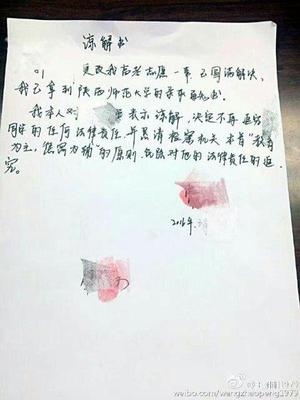 谅解书
更改我高考志愿一事已圆满解决,
我已拿到陕西师范大学的录取通知书。
我本人对 表示谅解,决定不再追究
的任何法律责任,并恳请检察机关本着"教育
为主,惩罚为辅"的原则,免除对他的法律责任的追
究。
2016年 月
weibo.com/wangzhaopeng1979